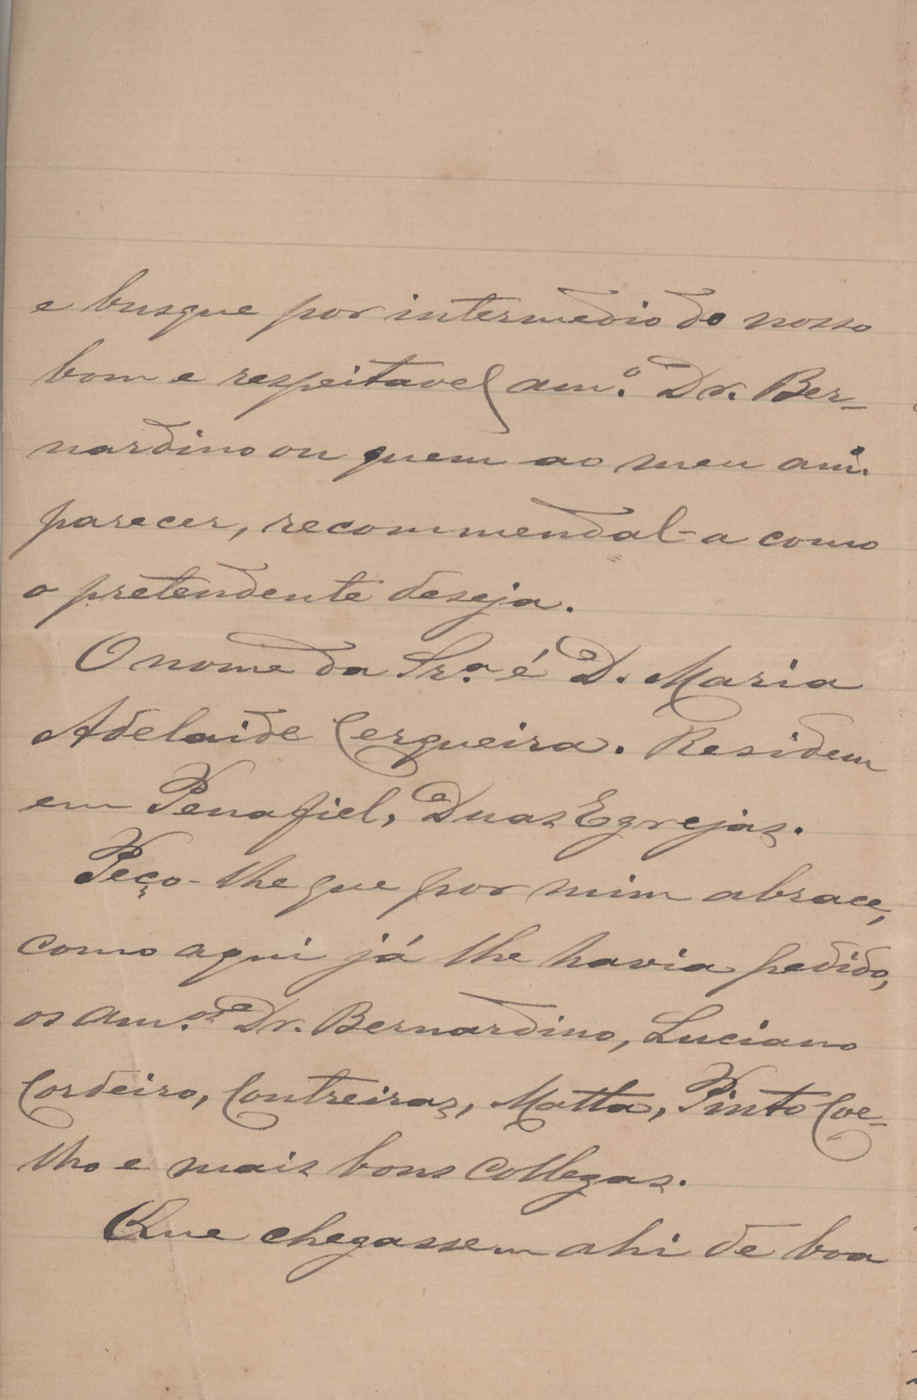 e busque por intermedio do nosso
bom e respeitavel am.º Dr. Ber-
nardino ou quem ao meu am.º
parecer, recommendal-a como
o pretendente deseja.
O nome da Srª é D. Maria
Adelaide Cerqueira. Residem
em Penafiel, Duas Egrejas.
Peço-lhe que por mim abrace,
como aqui já lhe havia pedido,
os am.os Dr. Bernardino, Luciano
Cordeiro, Contreiras, Matta, Pinto Coe-
lho e mais bons collegas.
Que chegassem ahi de boa